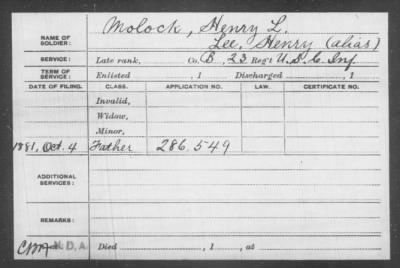 NAME OF SOLDIER: Molock, Henry L.
Lee, Henry (alias)
SERVICE: Late rank, Co. B, 23 Reg't U.S.C. Inf
TERM OF SERVICE: Enlisted , 1 Discharged , 1
DATE OF FILING. CLASS. APPLICATION NO. LAW. CERTIFICATE NO.
Invalid,
Widow,
Minor,
1881, Oct. 4 Father 286.549
ADDITIONAL SERVICES:
REMARKS:
N.D.A. Died , 1 , at